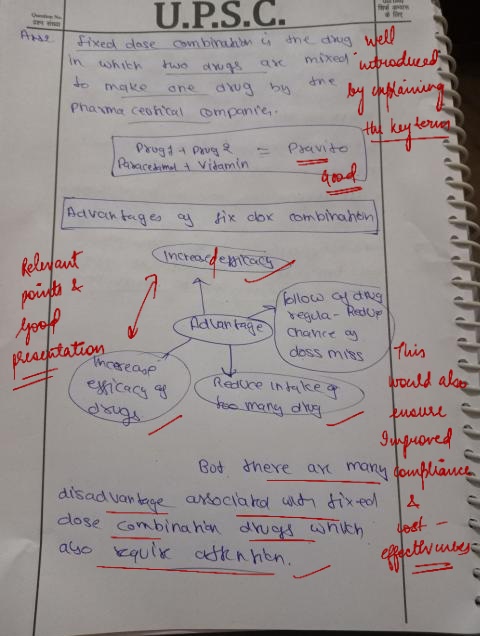 Question No.
प्रश्न संख्या
U.P.S.C.
के लिए
Ans2
fixed dose combination is the drug
in which two drugs are mixed
to make one drug by the
Pharmaceutical companies.
well
introduced
by explaining
the key terms
Drug 1 + Drug 2 = Pravito
Paracetamol + Vitamin
Good
Advantages of fix dox combination
Increased efficacy
Relevant
points &
Good
presentation
Advantage
follow of drug
regula - Reduce
chance of
doss miss
Increase
efficacy of
drugs
Reduce intake of
too many drug
This
would also
ensure
Improved
compliance
&
cost-
effectiveness
But there are many
disadvantage associated with fixed
dose combination drugs which
also require attention.